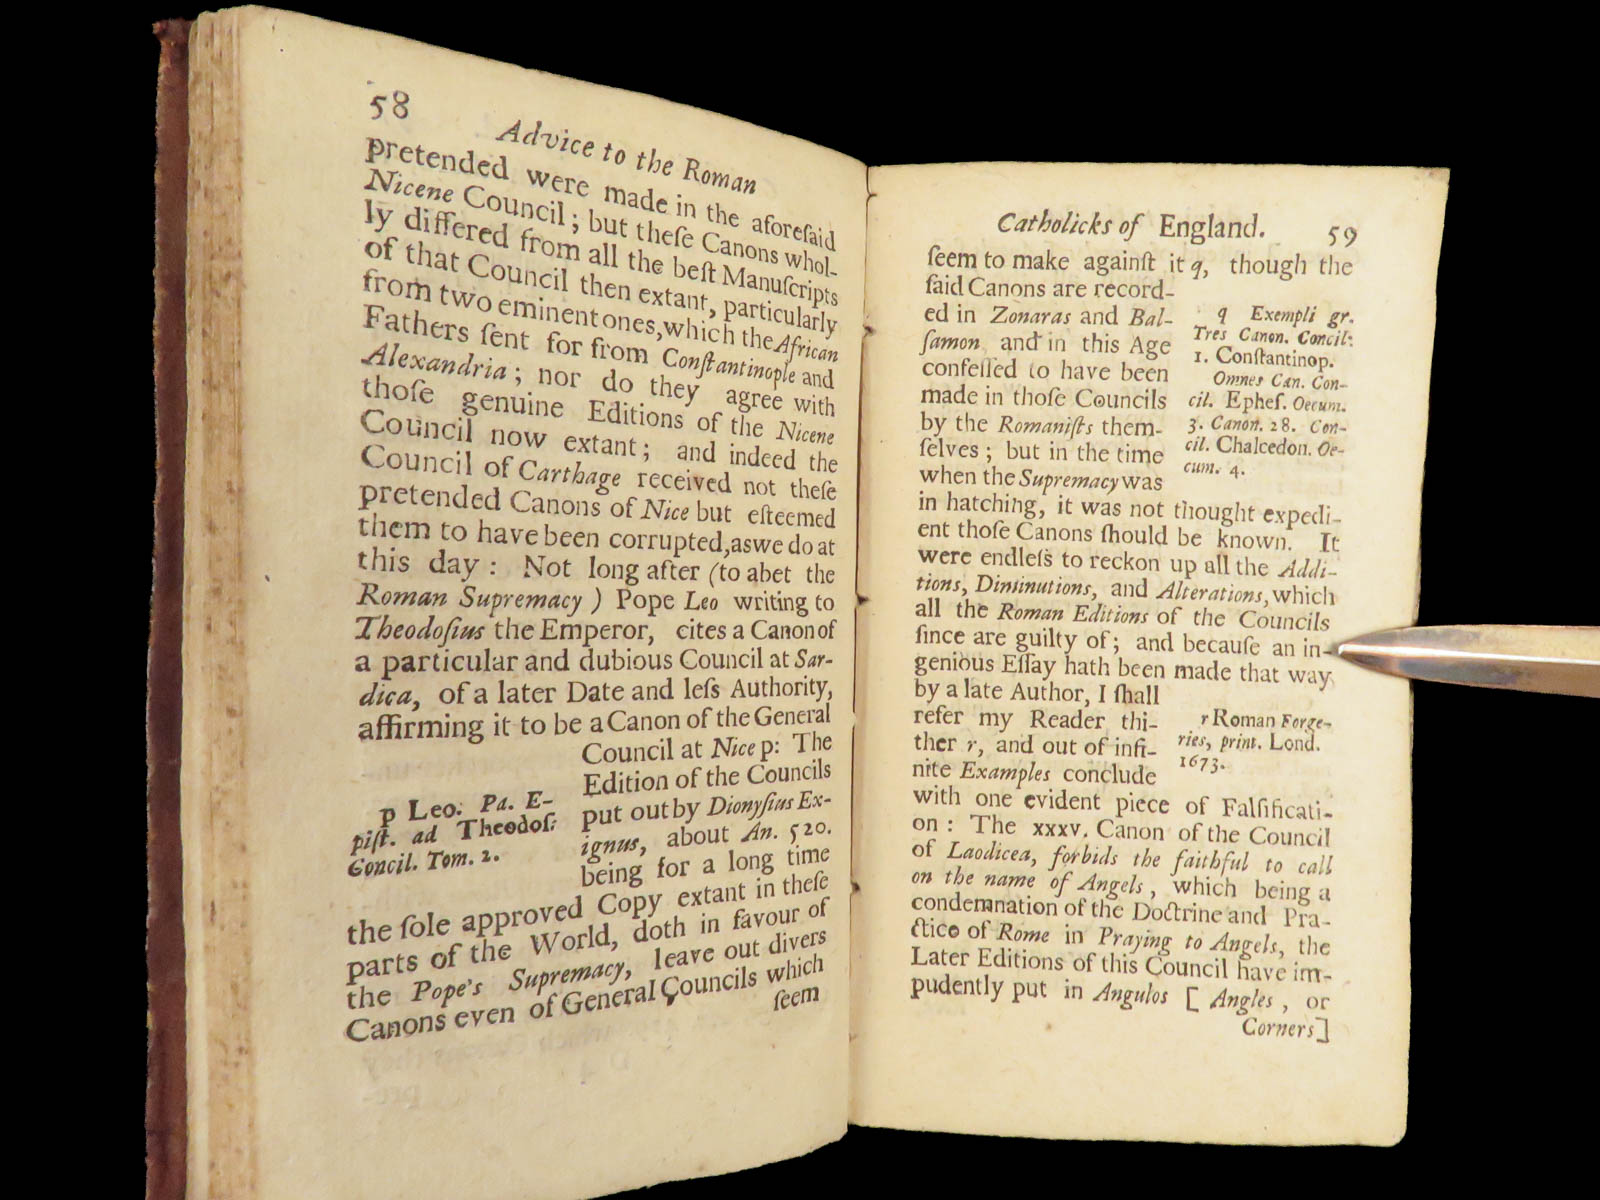 58
Advice to the Roman
pretended were made in the aforeſaid
Nicene Council; but theſe Canons whol-
ly differed from all the beſt Manuſcripts
of that Council then extant, particularly
from two eminent ones, which the African
Fathers ſent for from Conſtantinople and
Alexandria; nor do they agree with
thoſe genuine Editions of the Nicene
Council now extant; and indeed the
Council of Carthage received not theſe
pretended Canons of Nice but eſteemed
them to have been corrupted, as we do at
this day: Not long after (to abet the
Roman Supremacy) Pope Leo writing to
Theodoſius the Emperor, cites a Canon of
a particular and dubious Council at Sar-
dica, of a later Date and leſs Authority,
affirming it to be a Canon of the General
Council at Nice p: The
Edition of the Councils
put out by Dionyſius Ex-
ignus, about An. 520.
being for a long time
p Leo. Pa. E-
piſt. ad Theodoſ.
Concil. Tom. 2.
the ſole approved Copy extant in theſe
parts of the World, doth in favour of
the Pope's Supremacy, leave out divers
Canons even of General Councils which
ſeem
Catholicks of England. 59
ſeem to make againſt it q, though the
ſaid Canons are record-
ed in Zonaras and Bal-
ſamon and in this Age
confeſſed to have been
made in thoſe Councils
by the Romaniſts them-
ſelves; but in the time
when the Supremacy was
q Exempli gr.
Tres Canon. Concil.
1. Conſtantinop.
Omnes Can. Con-
cil. Epheſ. Oecum.
3. Canon. 28. Con-
cil. Chalcedon. Oe-
cum. 4.
in hatching, it was not thought expedi-
ent thoſe Canons ſhould be known. It
were endleſs to reckon up all the Addi-
tions, Diminutions, and Alterations, which
all the Roman Editions of the Councils
ſince are guilty of; and becauſe an in-
genious Eſſay hath been made that way
by a late Author, I ſhall
refer my Reader thi-
ther r, and out of infi-
nite Examples conclude
r Roman Forge-
ries, print. Lond.
1673.
with one evident piece of Falſificati-
on: The xxxv. Canon of the Council
of Laodicea, forbids the faithful to call
on the name of Angels, which being a
condemnation of the Doctrine and Pra-
ctice of Rome in Praying to Angels, the
Later Editions of this Council have im-
pudently put in Angulos [Angles, or
Corners]